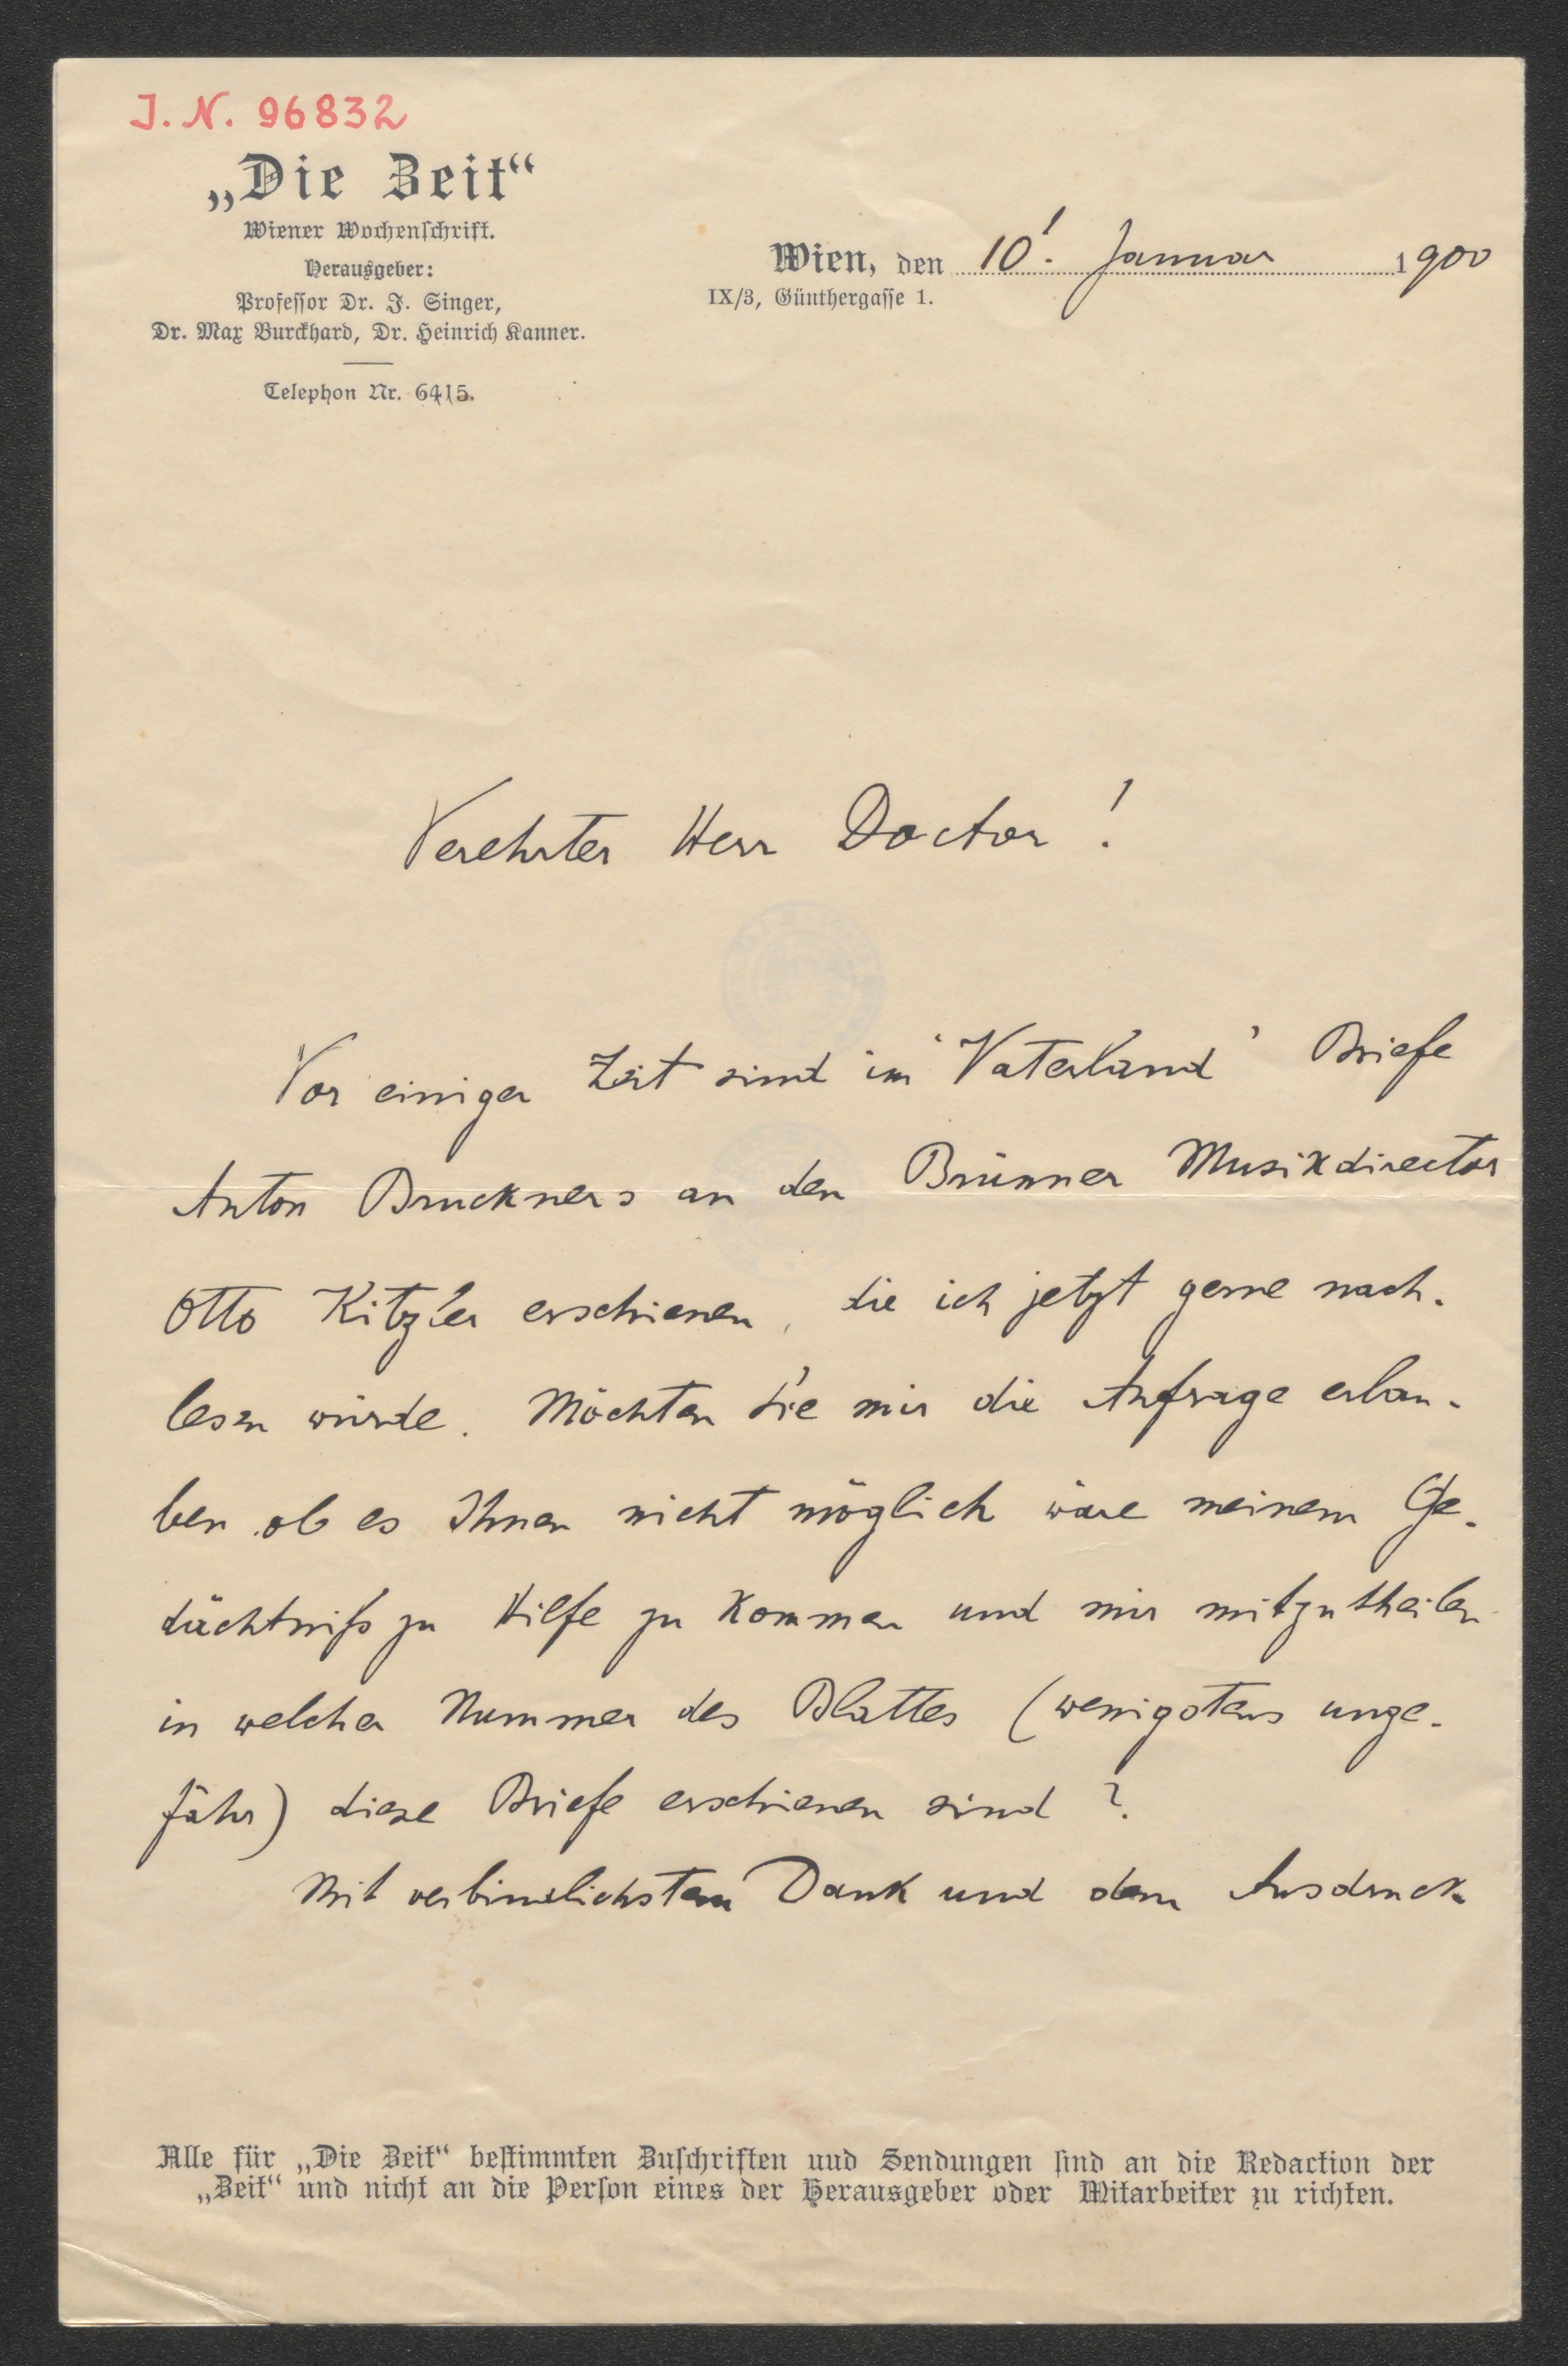 J. N. 96832
„Die Zeit“
Wiener Wochenschrift.
Herausgeber:
Professor Dr. J. Singer,
Dr. Max Burckhard, Dr. Heinrich Kanner.
Telephon Nr. 6415.
Wien, den 10. Januar 1900
IX/3, Günthergasse 1.
Verehrter Herr Doctor!
Vor einiger Zeit sind im 'Vaterland' Briefe
Anton Bruckners an den Brünner Musikdirector
Otto Kitzler erschienen, die ich jetzt gerne nach-
lesen würde. Möchten Sie mir die Anfrage erlau-
ben ob es Ihnen nicht möglich wäre meinem Ge-
dächtniß zu Hilfe zu kommen und mir mitzutheilen
in welcher Nummer des Blattes (wenigstens unge-
fähr) diese Briefe erschienen sind?
Mit verbindlichstem Dank und dem Ausdruck
Alle für „Die Zeit“ bestimmten Zuschriften und Sendungen sind an die Redaction der
„Zeit“ und nicht an die Person eines der Herausgeber oder Mitarbeiter zu richten.